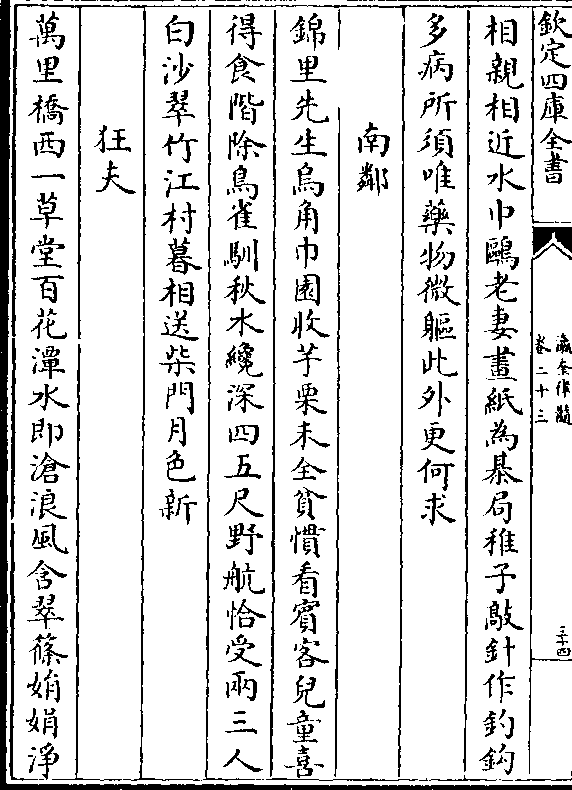 欽定四庫全書
瀛奎律髓
卷二十三
三十四
相親相近水中鷗老妻畫紙為棊局稚子敲針作釣鈎
多病所須唯藥物微軀此外更何求
南鄰
錦里先生烏角巾園收芋栗未全貧慣看賓客兒童喜
得食階除鳥雀馴秋水纔深四五尺野航恰受兩三人
白沙翠竹江村暮相送柴門月色新
狂夫
萬里橋西一草堂百花潭水即滄浪風含翠篠娟娟淨